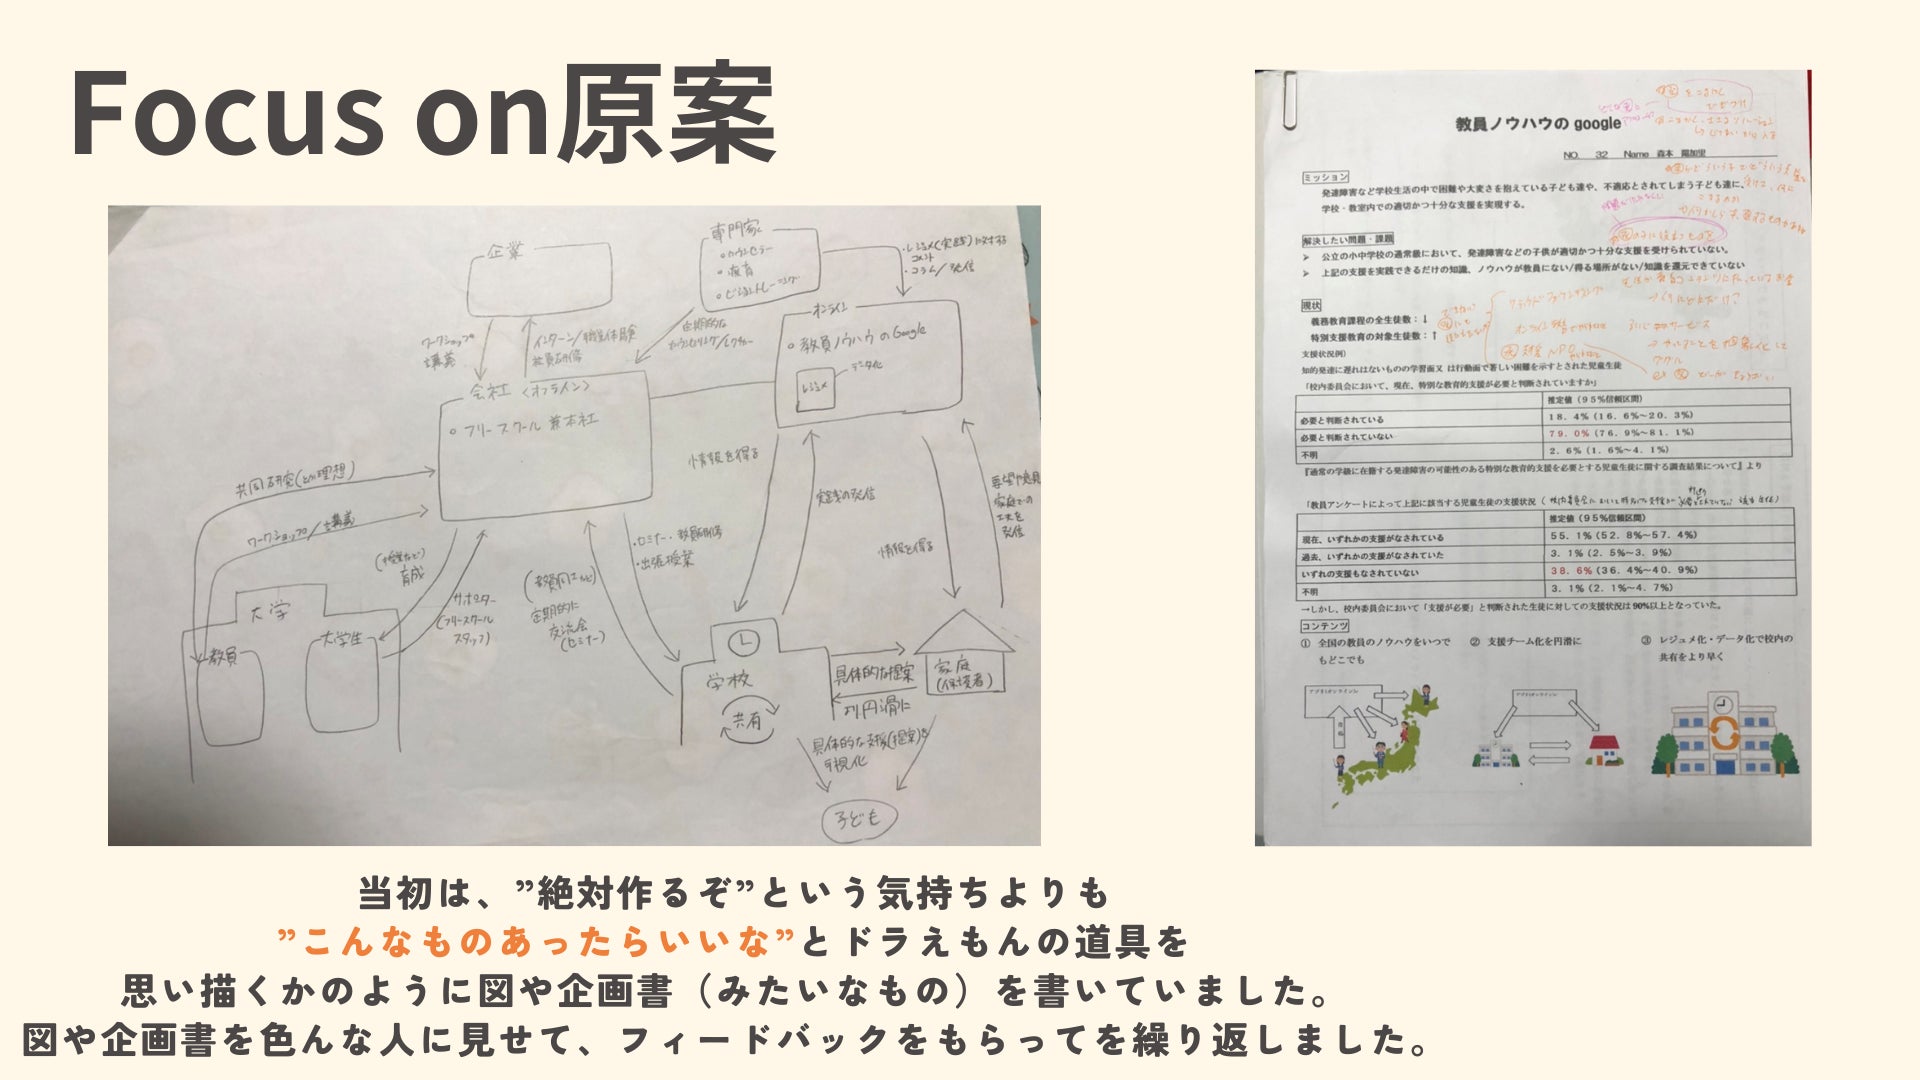 Focus on原案
企業
専門家
・カウンセラー
・療育
・ビジョントレーニング
・レジュメ(実践)に対する
コメント
・コラム/発信
オンライン
・教員ノウハウのGoogle
レジュメ
データ化
ワークショップ
講義
インターン/職業体験
社員研修
定期的な
カウンセリング/レクチャー
会社〈オフライン〉
・フリースクール兼本社
共同研究(とか理想)
ワークショップ/講義
情報を得る
実践の発信
情報を得る
要望や意見
家庭での
工夫を
発信
・セミナー・教員研修
・出張授業
育成
サポーター
(フリースクール
スタッフ)
定期的に
交流会
(セミナー)
大学
教員
大学生
学校
共有
具体的な提案
より円滑に
家庭
(保護者)
具体的な支援(提案)を
可視化
子ども
教員ノウハウの google
NO. 32 Name 森本 陽加里
ミッション
発達障害など学校生活の中で困難や大変さを抱えている子ども達や、不適応とされてしまう子ども達に、
学校・教室内での適切かつ十分な支援を実現する。
解決したい問題・課題
➢ 公立の小中学校の通常級において、発達障害などの子供が適切かつ十分な支援を受けられていない。
➢ 上記の支援を実践できるだけの知識、ノウハウが教員にない/得る場所がない/知識を還元できていない
現状
義務教育課程の全生徒数:↓
特別支援教育の対象生徒数:↑
支援状況例)
知的発達に遅れはないものの学習面又は行動面で著しい困難を示すとされた児童生徒
「校内委員会において、現在、特別な教育的支援が必要と判断されていますか」
推定値(95%信頼区間)
必要と判断されている 18.4%(16.6%~20.3%)
必要と判断されていない 79.0%(76.9%~81.1%)
不明 2.6%(1.6%~4.1%)
『通常の学級に在籍する発達障害の可能性のある特別な教育的支援を必要とする児童生徒に関する調査結果について』より
「教員アンケートによって上記に該当する児童生徒の支援状況
推定値(95%信頼区間)
現在、いずれかの支援がなされている 55.1%(52.8%~57.4%)
過去、いずれかの支援がなされていた 3.1%(2.5%~3.9%)
いずれの支援もなされていない 38.6%(36.4%~40.9%)
不明 3.1%(2.1%~4.7%)
→しかし、校内委員会において「支援が必要」と判断された生徒に対しての支援状況は90%以上となっていた。
コンテンツ
① 全国の教員のノウハウをいつで
もどこでも
② 支援チーム化を円滑に
③ レジュメ化・データ化で校内の
共有をより早く
当初は、”絶対作るぞ”という気持ちよりも
”こんなものあったらいいな”とドラえもんの道具を
思い描くかのように図や企画書(みたいなもの)を書いていました。
図や企画書を色んな人に見せて、フィードバックをもらってを繰り返しました。